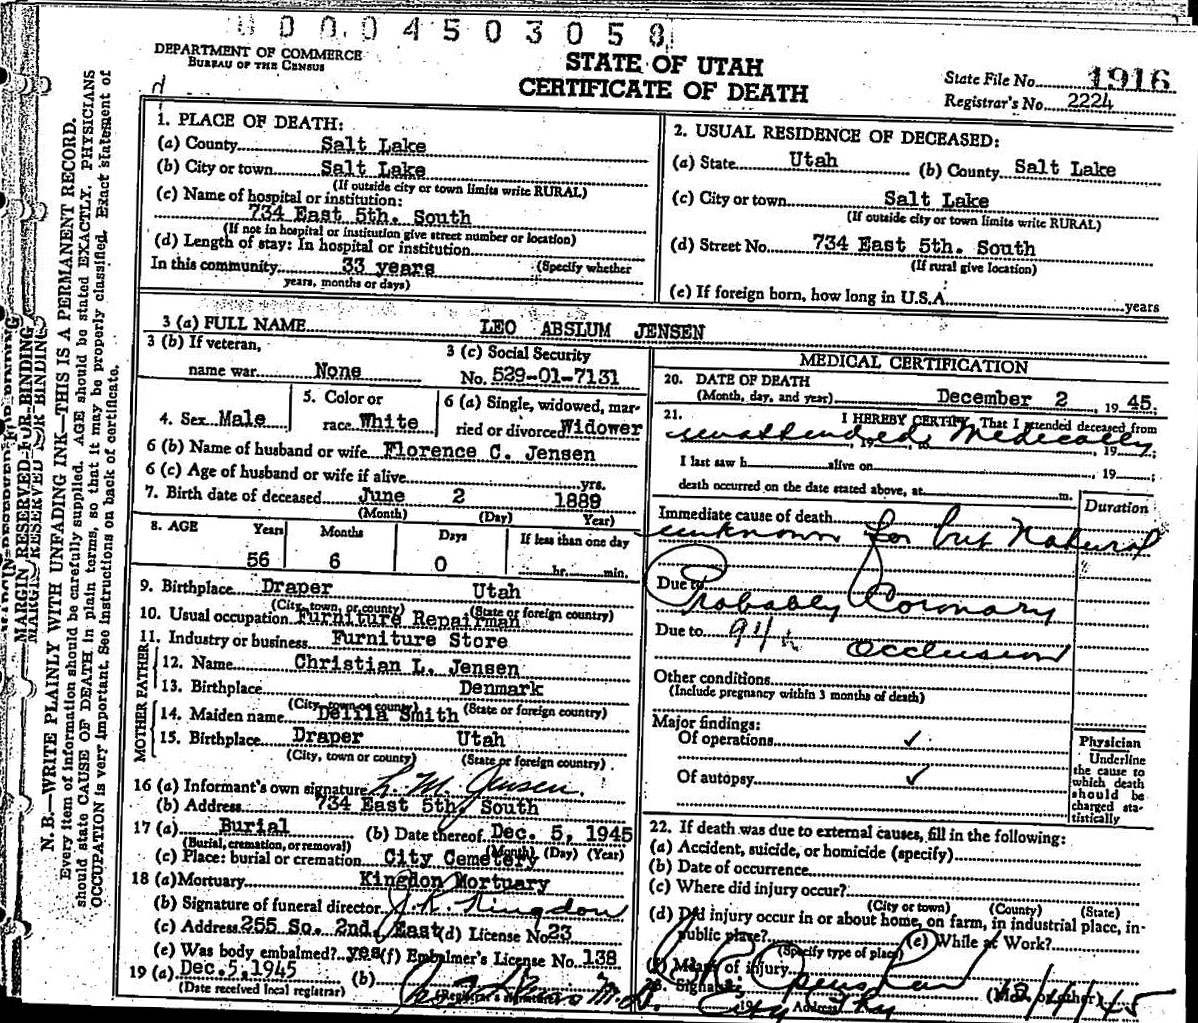 0 0 0.0 4 5 0 3 0 5 8
DEPARTMENT OF COMMERCE
BUREAU OF THE CENSUS
STATE OF UTAH
CERTIFICATE OF DEATH
State File No. 1916
Registrar's No. 2224
1. PLACE OF DEATH:
(a) County Salt Lake
(b) City or town Salt Lake
(If outside city or town limits write RURAL)
(c) Name of hospital or institution:
734 East 5th. South
(If not in hospital or institution give street number or location)
(d) Length of stay: In hospital or institution
In this community 33 years (Specify whether
years, months or days)
2. USUAL RESIDENCE OF DECEASED:
(a) State Utah (b) County Salt Lake
(c) City or town Salt Lake
(If outside city or town limits write RURAL)
(d) Street No. 734 East 5th. South
(If rural give location)
(e) If foreign born, how long in U.S.A. years
3 (a) FULL NAME LEO ABSLUM JENSEN
3 (b) If veteran,
name war None
3 (c) Social Security
No. 529-01-7131
4. Sex Male
5. Color or
race White
6 (a) Single, widowed, mar-
ried or divorced Widower
6 (b) Name of husband or wife Florence C. Jensen
6 (c) Age of husband or wife if alive yrs.
7. Birth date of deceased June 2 1889
(Month) (Day) Year)
8. AGE Years Months Days If less than one day
56 6 0 hr. min.
9. Birthplace Draper Utah
(City, town, or county) (State or foreign country)
10. Usual occupation Furniture Repairman
11. Industry or business Furniture Store
FATHER
12. Name Christian L. Jensen
13. Birthplace Denmark
(City, town or county) (State or foreign country)
MOTHER
14. Maiden name Delila Smith
15. Birthplace Draper Utah
(City, town or county) (State or foreign country)
16 (a) Informant's own signature L. M. Jensen.
(b) Address 734 East 5th. South
17 (a) Burial (b) Date thereof Dec. 5, 1945
(Burial, cremation, or removal) (Month) (Day) (Year)
(c) Place: burial or cremation City Cemetery
18 (a) Mortuary Kingdon Mortuary
(b) Signature of funeral director J. K. Kingdon
(c) Address 255 So. 2nd. East (d) License No. 23
(e) Was body embalmed? yes (f) Embalmer's License No. 138
19 (a) Dec. 5, 1945 (b)
(Date received local registrar) (Registrar's signature)
MEDICAL CERTIFICATION
20. DATE OF DEATH
(Month, day, and year) December 2, 19 45.
21. I HEREBY CERTIFY, That I attended deceased from
unattended Medically, 19
I last saw h alive on 19 ;
death occurred on the date stated above, at m.
Duration
Immediate cause of death
unknown but Natural
Due to
Probably Coronary
Due to 94
Occlusion
Other conditions
(Include pregnancy within 3 months of death)
Major findings:
Of operations ✓
Of autopsy ✓
Physician
Underline
the cause to
which death
should be
charged sta-
tistically
22. If death was due to external causes, fill in the following:
(a) Accident, suicide, or homicide (specify)
(b) Date of occurrence
(c) Where did injury occur?
(City or town) (County) (State)
(d) Did injury occur in or about home, on farm, in industrial place, in-
public place? (e) While at Work?
(Specify type of place)
(f) Means of injury
23. Signature
Address City
N. B.—WRITE PLAINLY WITH UNFADING INK—THIS IS A PERMANENT RECORD.
Every item of information should be carefully supplied. AGE should be stated EXACTLY. PHYSICIANS
should state CAUSE OF DEATH in plain terms, so that it may be properly classified. Exact statement of
OCCUPATION is very important. See instructions on back of certificate.
MARGIN RESERVED FOR BINDING
MARGIN RESERVED FOR BINDING